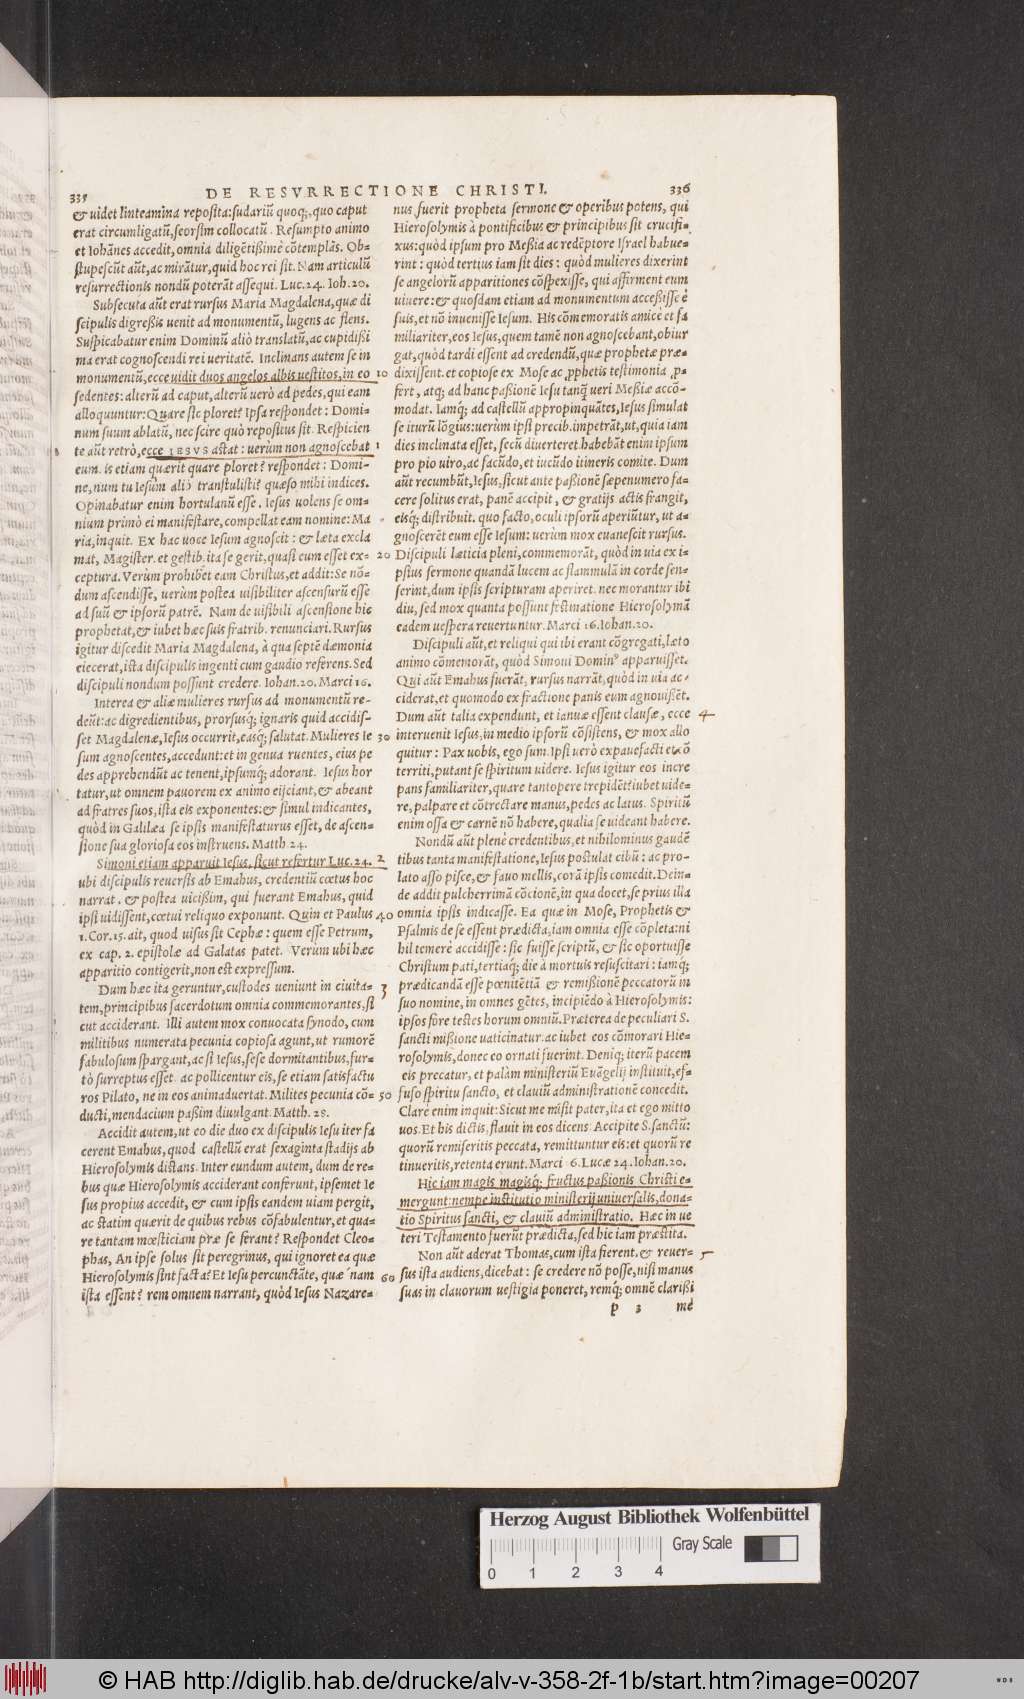 335 DE RESVRRECTIONE CHRISTI. 336
& uidet linteamina reposita: sudariũ quoq;, quo caput
erat circumligatũ, seorsim collocatũ. Resumpto animo
et Iohãnes accedit, omnia diligẽtißimè cõtemplãs. Ob=
stupescũt aũt, ac mirãtur, quid hoc rei sit. Nam articulũ
resurrectionis nondũ poterãt assequi. Luc. 24. Ioh. 20.
Subsecuta aũt erat rursus Maria Magdalena, quæ di
scipulis digreßis uenit ad monumentũ, lugens ac flens.
Suspicabatur enim Dominũ aliò translatũ, ac cupidißi
ma erat cognoscendi rei ueritatẽ. Inclinans autem se in
monumentũ, ecce uidit duos angelos albis uestitos, in eo 10
sedentes: alterũ ad caput, alterũ uerò ad pedes, qui eam
alloquuntur: Quare sic ploret? Ipsa respondet: Domi=
num suum ablatũ, nec scire quò repositus sit. Respicien
te aũt retrò, ecce IESVS astat: uerùm non agnoscebat 1
eum. is etiam quærit quare ploret? respondet: Domi=
ne, num tu Iesum aliò transtulisti? quæso mihi indices.
Opinabatur enim hortulanũ esse. Iesus uolens se om=
nium primò ei manifestare, compellat eam nomine: Ma
ria, inquit. Ex hac uoce Iesum agnoscit: & læta excla
mat, Magister. et gestib. ita se gerit, quasi cum esset ex= 20
ceptura. Verùm prohibet eam Christus, et addit: Se nõ=
dum ascendisse, uerùm postea uisibiliter ascensurũ esse
ad suũ & ipsorũ patrẽ. Nam de uisibili ascensione hic
prophetat, & iubet hæc suis fratrib. renunciari. Rursus
igitur discedit Maria Magdalena, à qua septẽ dæmonia
eiecerat, ista discipulis ingenti cum gaudio referens. Sed
discipuli nondum possunt credere. Iohan. 20. Marci 16.
Interea & aliæ mulieres rursus ad monumentũ re=
deũt: ac digredientibus, prorsusq; ignaris quid accidis=
set Magdalenæ, Iesus occurrit, easq; salutat. Mulieres Ie 30
sum agnoscentes, accedunt: et in genua ruentes, eius pe
des apprehendũt ac tenent, ipsumq; adorant. Iesus hor
tatur, ut omnem pauorem ex animo eijciant, & abeant
ad fratres suos, ista eis exponentes: & simul indicantes,
quòd in Galilæa se ipsis manifestaturus esset, de ascen=
sione sua gloriosa eos instruens. Matth. 24.
Simoni etiam apparuit Iesus, sicut refertur Luc. 24. 2
ubi discipulis reuersis ab Emahus, credentiũ cœtus hoc
narrat. & postea uicißim, qui fuerant Emahus, quid
ipsi uidissent, cœtui reliquo exponunt. Quin et Paulus 40
1. Cor. 15. ait, quod uisus sit Cephæ: quem esse Petrum,
ex cap. 2. epistolæ ad Galatas patet. Verùm ubi hæc
apparitio contigerit, non est expressum.
Dum hæc ita geruntur, custodes ueniunt in ciuita= 3
tem, principibus sacerdotum omnia commemorantes, si
cut acciderant. Illi autem mox conuocata synodo, cum
militibus numerata pecunia copiosa agunt, ut rumorẽ
fabulosum spargant, ac si Iesus, sese dormitantibus, fur=
tò surreptus esset. ac pollicentur eis, se etiam satisfactu
ros Pilato, ne in eos animaduertat. Milites pecunia cõ= 50
ducti, mendacium paßim diuulgant. Matth. 28.
Accidit autem, ut eo die duo ex discipulis Iesu iter fa
cerent Emahus, quod castellũ erat sexaginta stadijs ab
Hierosolymis distans. Inter eundum autem, dum de re=
bus quæ Hierosolymis acciderant conferunt, ipsemet Ie
sus propius accedit, & cum ipsis eandem uiam pergit,
ac statim quærit de quibus rebus cõfabulentur, et qua=
re tantam mœsticiam præ se ferant? Respondet Cleo=
phas, An ipse solus sit peregrinus, qui ignoret ea quæ
Hierosolymis sint facta? Et Iesu percunctãte, quæ nam 60
ista essent? rem omnem narrant, quòd Iesus Nazare=
nus fuerit propheta sermone & operibus potens, qui
Hierosolymis à pontificibus & principibus sit crucifi=
xus: quòd ipsum pro Meßia ac redẽptore Israel habue=
rint: quòd tertius iam sit dies: quòd mulieres dixerint
se angelorũ apparitiones cõspexisse, qui affirment eum
uiuere: & quosdam etiam ad monumentum acceßisse è
suis, et nõ inuenisse Iesum. His cõmemoratis amicè et fa
miliariter, eos Iesus, quem tamẽ non agnoscebant, obiur
gat, quòd tardi essent ad credendũ, quæ prophetæ præ=
dixissent. et copiose ex Mose ac ꝓphetis testimonia ꝓ=
fert, atq; ad hanc paßionẽ Iesu tanq̃ ueri Meßiæ accõ=
modat. Iamq; ad castellũ appropinquãtes, Iesus simulat
se iturũ lõgius: uerùm ipsi precib. impetrãt, ut, quia iam
dies inclinata esset, secũ diuerteret habebãt enim ipsum
pro pio uiro, ac facũdo, et iucũdo itineris comite. Dum
aũt recumbũt, Iesus, sicut ante paßionẽ sæpenumero fa=
cere solitus erat, panẽ accipit, & gratijs actis frangit,
eisq; distribuit. quo facto, oculi ipsorũ aperiũtur, ut a=
gnoscerẽt eum esse Iesum: uerùm mox euanescit rursus.
Discipuli læticia pleni, commemorãt, quòd in uia ex i=
psius sermone quandã lucem ac flammulã in corde sen=
serint, dum ipsis scripturam aperiret. nec morantur ibi
diu, sed mox quanta possunt festinatione Hierosolymã
eadem uespera reuertuntur. Marci 16. Iohan. 20.
Discipuli aũt, et reliqui qui ibi erant cõgregati, læto
animo cõmemorãt, quòd Simoni Dominꝰ apparuisset.
Qui aũt Emahus fuerãt, rursus narrãt, quòd in uia ac=
ciderat, et quomodo ex fractione panis eum agnouißẽt.
Dum aũt talia expendunt, et ianuæ essent clausæ, ecce 4
interuenit Iesus, in medio ipsorũ cõsistens, & mox allo
quitur: Pax uobis, ego sum. Ipsi uerò expauefacti et cõ
territi, putant se spiritum uidere. Iesus igitur eos incre
pans familiariter, quare tantopere trepidẽt? iubet uide=
re, palpare et cõtrectare manus, pedes ac latus. Spiritũ
enim ossa & carnẽ nõ habere, qualia se uideant habere.
Nondũ aũt plenè credentibus, et nihilominus gaudẽ
tibus tanta manifestatione, Iesus postulat cibũ: ac pro=
lato asso pisce, & fauo mellis, corã ipsis comedit. Dein=
de addit pulcherrimã cõcionẽ, in qua docet, se prius illa
omnia ipsis indicasse. Ea quæ in Mose, Prophetis &
Psalmis de se essent prædicta, iam omnia esse cõpleta: ni
hil temerè accidisse: sic fuisse scriptũ, & sic oportuisse
Christum pati, tertiaq; die à mortuis resuscitari: iamq;
prædicandã esse pœnitẽtiã & remißionẽ peccatorũ in
suo nomine, in omnes gẽtes, incipiẽdo à Hierosolymis:
ipsos fore testes horum omniũ. Præterea de peculiari S.
sancti mißione uaticinatur. ac iubet eos cõmorari Hie=
rosolymis, donec eo ornati fuerint. Deniq; iterũ pacem
eis precatur, et palàm ministeriũ Euãgelij instituit, ef=
fuso spiritu sancto, et clauiũ administrationẽ concedit.
Clarè enim inquit: Sicut me misit pater, ita et ego mitto
uos. Et his dictis, flauit in eos dicens: Accipite S. sanctũ:
quorũ remiseritis peccata, remittuntur eis: et quorũ re
tinueritis, retenta erunt. Marci 6. Lucæ 24. Iohan. 20.
Hic iam magis magisq; fructus paßionis Christi e=
mergunt: nempe institutio ministerij uniuersalis, dona=
tio Spiritus sancti, & clauiũ administratio. Hæc in ue
teri Testamento fuerũt prædicta, sed hic iam præstita.
Non aũt aderat Thomas, cum ista fierent. & reuer= 5
sus ista audiens, dicebat: se credere nõ posse, nisi manus
suas in clauorum uestigia poneret, remq; omnẽ clarißi
p 3 mè
Herzog August Bibliothek Wolfenbüttel
Gray Scale
0 1 2 3 4
© HAB http://diglib.hab.de/drucke/alv-v-358-2f-1b/start.htm?image=00207